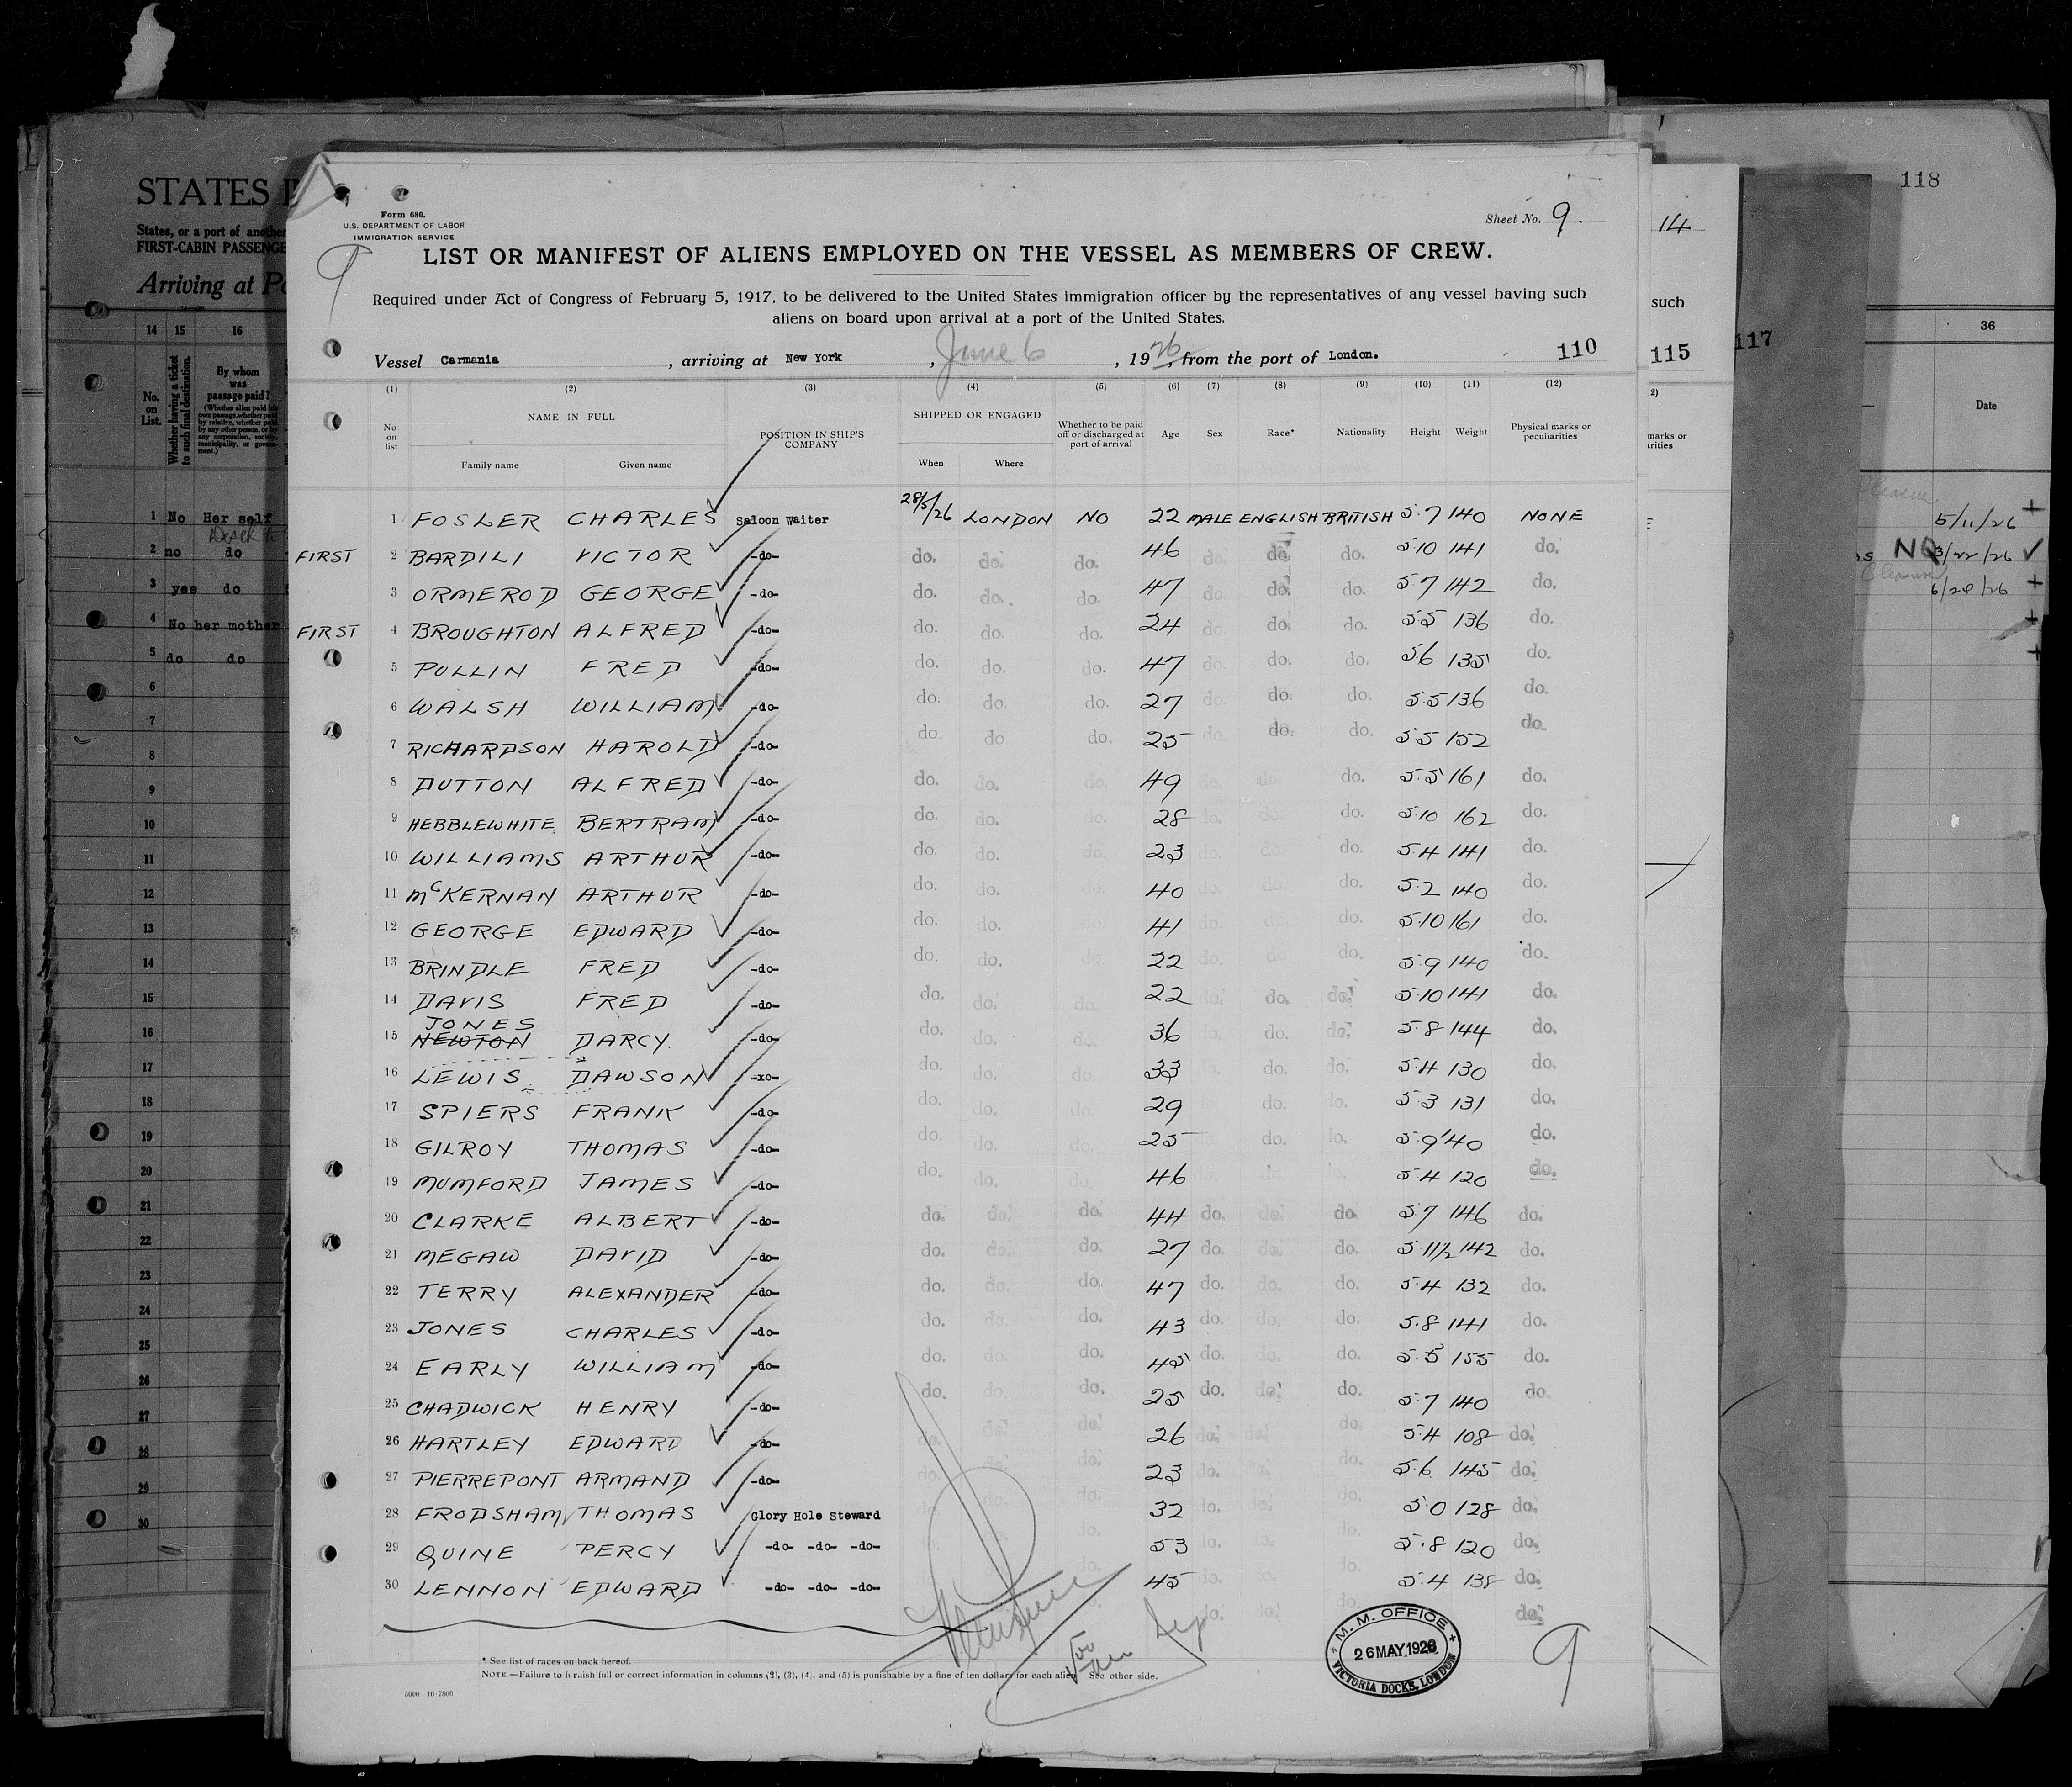 118
14
STATES I
States, or a port of another
FIRST-CABIN PASSENGE
Arriving at Po
Form 680.
U.S. DEPARTMENT OF LABOR
IMMIGRATION SERVICE
Sheet No. 9.
9
LIST OR MANIFEST OF ALIENS EMPLOYED ON THE VESSEL AS MEMBERS OF CREW.
Required under Act of Congress of February 5, 1917, to be delivered to the United States immigration officer by the representatives of any vessel having such
aliens on board upon arrival at a port of the United States.
such
Vessel Carmania, arriving at New York, June 6, 1926, from the port of London. 110
115
117
(1) (2) (3) (4) (5) (6) (7) (8) (9) (10) (11) (12)
No on list
NAME IN FULL
Family name Given name
POSITION IN SHIP'S COMPANY
SHIPPED OR ENGAGED
When Where
Whether to be paid off or discharged at port of arrival
Age Sex Race* Nationality Height Weight
Physical marks or peculiarities
1 FOSLER CHARLES Saloon Waiter 28/5/26 LONDON NO 22 MALE ENGLISH BRITISH 5.7 140 NONE
FIRST 2 BARDILI VICTOR -do- do. do. do. 46 do. do. do. 5.10 141 do.
3 ORMEROD GEORGE -do- do. do. do. 47 do. do. do. 5.7 142 do.
FIRST 4 BROUGHTON ALFRED -do- do. do. do. 24 do. do. do. 5.5 136 do.
5 PULLIN FRED -do- do. do. do. 47 do. do. do. 5.6 135 do.
6 WALSH WILLIAM -do- do. do. do. 27 do. do. do. 5.5 136 do.
7 RICHARDSON HAROLD -do- do. do do. 25 do. do. do. 5.5 152 do.
8 DUTTON ALFRED -do- do. do. do. 49 do. do. do. 5.5 161 do.
9 HEBBLEWHITE BERTRAM -do- do. do. do. 28 do. do. do. 5.10 162 do.
10 WILLIAMS ARTHUR -do- do. do. do. 23 do. do. do. 5.4 141 do.
11 McKERNAN ARTHUR -do- do. do. do. 40 do. do. do. 5.2 140 do.
12 GEORGE EDWARD -do- do. do. do. 41 do. do. do. 5.10 161 do.
13 BRINDLE FRED -do- do. do. do. 22 do. do. do. 5.9 140 do.
14 DAVIS FRED -do- do. do. do. 22 do. do. do. 5.10 141 do.
JONES
15 NEWTON DARCY. -do- do. do. do. 36 do. do. do. 5.8 144 do.
16 LEWIS DAWSON -xo- do. do. do. 33 do. do. do. 5.4 130 do.
17 SPIERS FRANK -do- do. do. do. 29 do. do. do. 5.3 131 do.
18 GILROY THOMAS -do- do. do. do. 25 do. do. do. 5.9 140 do.
19 MUMFORD JAMES -do- do. do. do. 46 do. do. 5.4 120 do.
20 CLARKE ALBERT -do- do. do. do. 44 do. do. do. 5.7 146 do.
21 MEGAW DAVID -do- do. do. do. 27 do. do. do. 5.11½ 142 do.
22 TERRY ALEXANDER -do- do. do. do. 47 do. do. do. 5.4 132 do.
23 JONES CHARLES -do- do. do. do. 43 do. do. do. 5.8 141 do.
24 EARLY WILLIAM -do- do. do. do. 45 do. do. do. 5.5 155 do.
25 CHADWICK HENRY -do- do. do. do. 25 do. do. do. 5.7 140 do
26 HARTLEY EDWARD -do- do. do. do. 26 do. do. do. 5.4 108 do.
27 PIERREPONT ARMAND -do- do. do. do. 23 do. do. do. 5.6 145 do.
28 FRODSHAM THOMAS Glory Hole Steward do. do. do. 32 do. do. do. 5.0 128 do.
29 QUINE PERCY -do- -do- -do- do. 53 do. do. do. 5.8 120 do.
30 LENNON EDWARD -do- -do- -do- do. 45 do. do. do. 5.4 138 do.
do. do. do. do.
* See list of races on back hereof.
NOTE.—Failure to furnish full or correct information in columns (2), (3), (4), and (5) is punishable by a fine of ten dollars for each alien. See other side.
M. M. OFFICE
26 MAY 1926
VICTORIA DOCKS, LONDON
9
14 15 16
No. on List.
Whether having a ticket to such final destination.
By whom was passage paid?
1 No Her self
2 no do
3 yes do
4 No her mother
5 do do
6
7
8
9
10
11
12
13
14
15
16
17
18
19
20
21
22
23
24
25
26
27
28
29
30
36
Date
Pleasure
5/11/26 +
NO 3/22/26 ✓
Pleasure
6/28/26 +